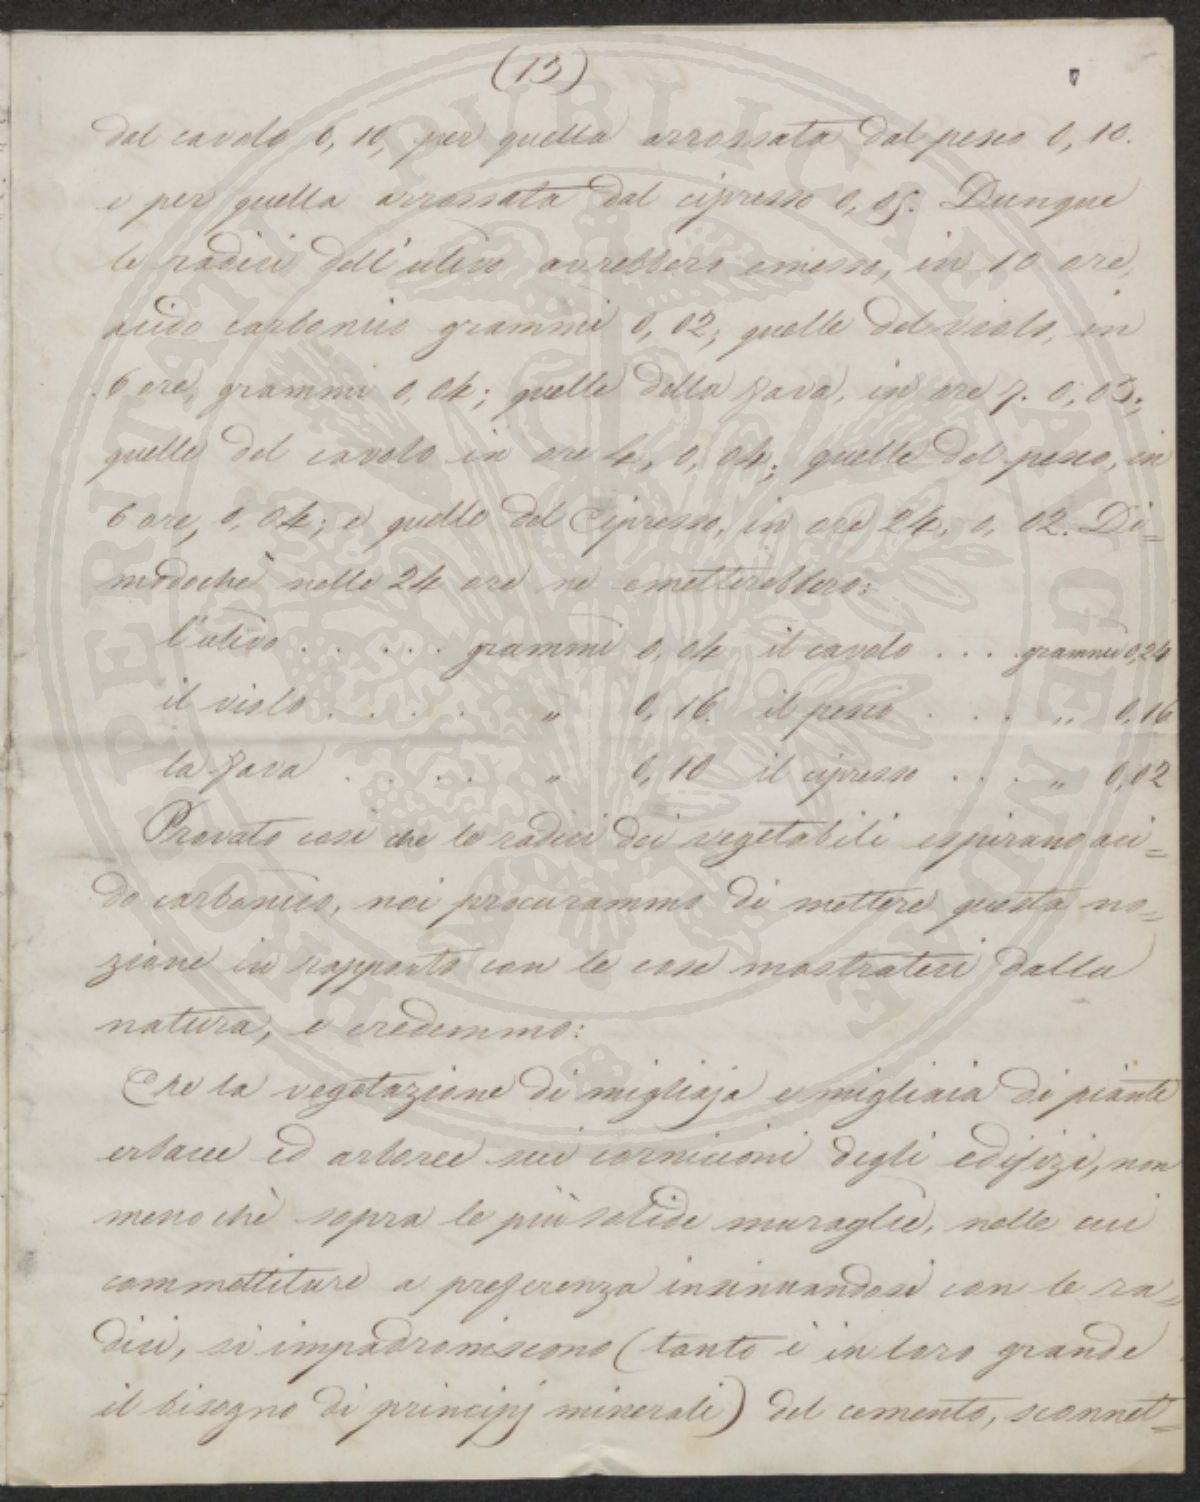 (13)
dal cavolo 0, 10, per quella arrossata dal pesco 0, 10.
e per quella arrossata dal cipresso 0, 05. Dunque
le radici dell'ulivo avrebbero emesso, in 10 ore,
acido carbonico grammi 0, 02; quelle del violo, in
6 ore, grammi 0, 04; quelle della fava, in ore 7. 0, 03;
quelle del cavolo in ore 4, 0, 04; quelle del pesco, in
6 ore, 0, 04; e quelle del Cipresso, in ore 24, 0, 02. Di=
modochè nelle 24 ore ne emetterebbero:
l'ulivo . . . . . grammi 0, 04 il cavolo . . . . grammi 0,24
il violo . . . . . " 0, 16. il pesco . . . . " 0,16
la fava . . . . . " 0, 10 il cipresso . . . . " 0,02
Provato così che le radici dei vegetabili espirano aci=
do carbonico, noi procurammo di mettere questa no=
zione in rapporto con le cose mostrateci dalla
natura, e credemmo:
Che la vegetazione di migliaja e migliaia di piante
erbacee ed arboree sui cornicioni degli edifizi, non
meno chè sopra le più solide muraglie, nelle cui
commettiture a preferenza insinuandosi con le ra=
dici, si impadroniscono (tanto è in loro grande
il bisogno di principj minerali) del cemento, sconnet=
HOSPERITATI PUBLICAE AUGENDAE